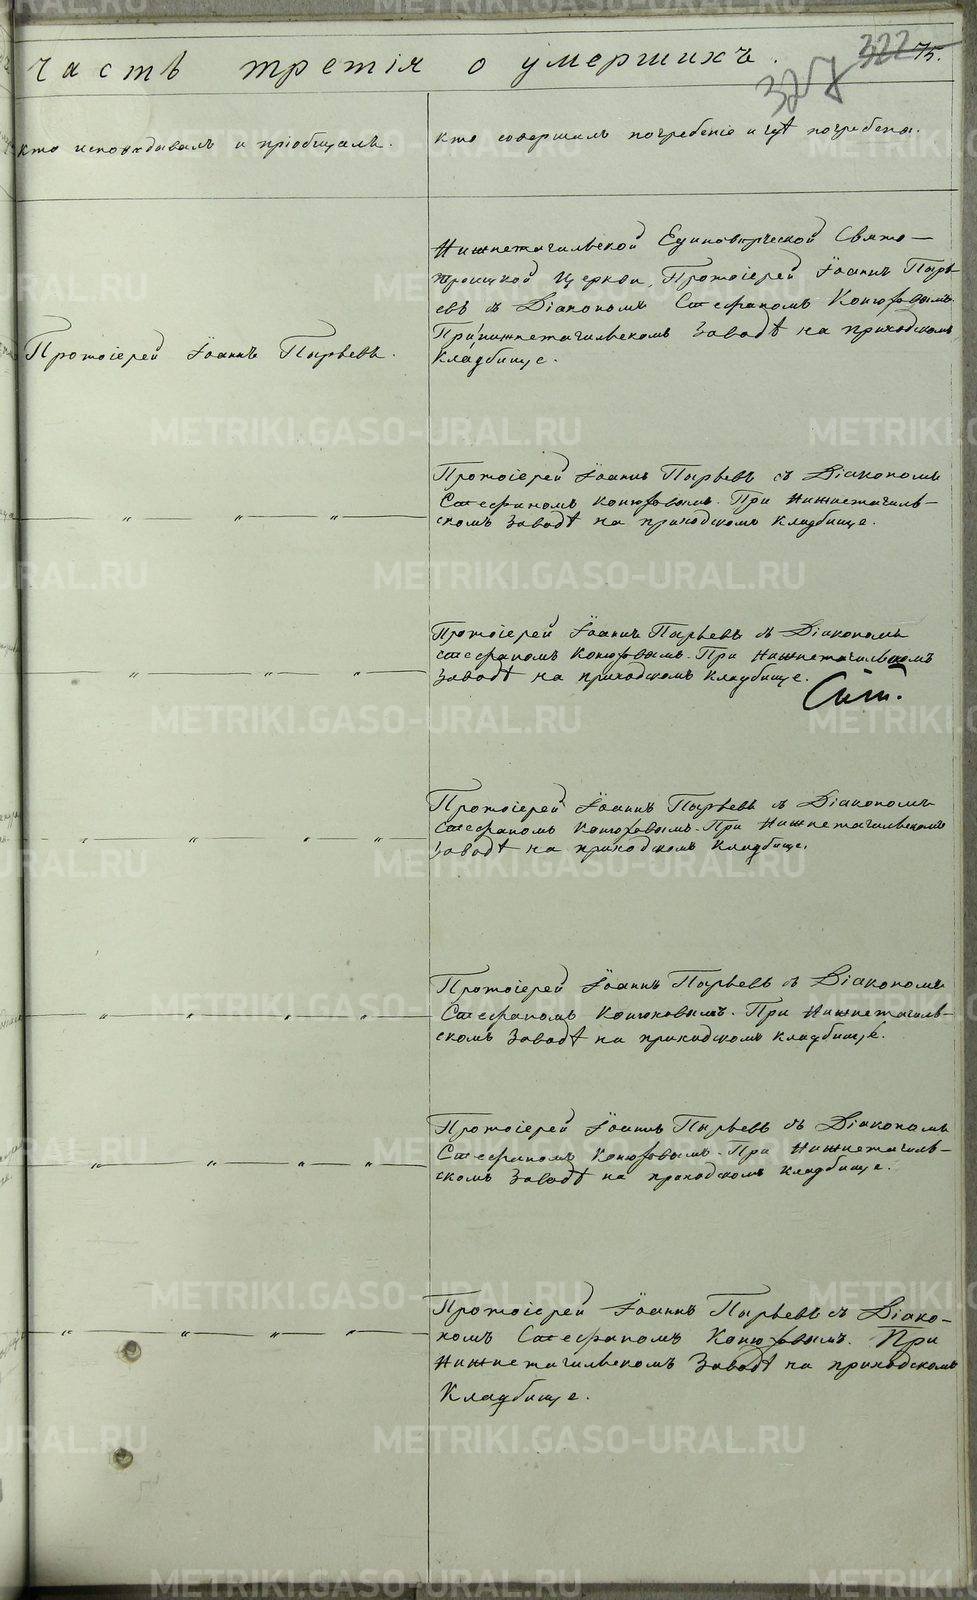 часть третія о умершихъ.
322 75.
327
Кто исповѣдавалъ и пріобщалъ.
Кто совершалъ погребеніе и гдѣ погребены.
Нижнетагильской Единовѣрческой Свято—
троицкой Церкви, Протоіерей Іоаннъ Пырь-
евъ съ Діакономъ Стефаномъ Конюховымъ.
При Нижнетагильскомъ Заводѣ на приходскомъ
Кладбище.
Протоіерей Іоаннъ Пырьевъ.
Протоіерей Іоаннъ Пырьевъ съ Діакономъ
Стефаномъ Конюховымъ. При Нижнетагиль-
скомъ Заводѣ на приходскомъ Кладбище.
— „ — „ — „ —
Протоіерей Іоаннъ Пырьевъ съ Діакономъ
Стефаномъ Конюховымъ. При Нижнетагильскомъ
Заводѣ на приходскомъ Кладбище.
— „ — „ — „ —
Протоіерей Іоаннъ Пырьевъ съ Діакономъ
Стефаномъ Конюховымъ. При Нижнетагильскомъ
Заводѣ на приходскомъ Кладбище.
„ „ „ „
Протоіерей Іоаннъ Пырьевъ съ Діакономъ
Стефаномъ Конюховымъ. При Нижнетагиль-
скомъ Заводѣ на приходскомъ кладбище.
— „ — „ — „ — „ —
Протоіерей Іоаннъ Пырьевъ съ Діакономъ
Стефаномъ Конюховымъ. При Нижнетагиль-
скомъ Заводѣ на приходскомъ кладбище.
„ „ „ — „ —
Протоіерей Іоаннъ Пырьевъ съ Діако-
номъ Стефаномъ Конюховымъ. При
Нижнетагильскомъ Заводѣ на приходскомъ
Кладбище.
— „ — „ — „ — „ —
METRIKI.GASO-URAL.RU